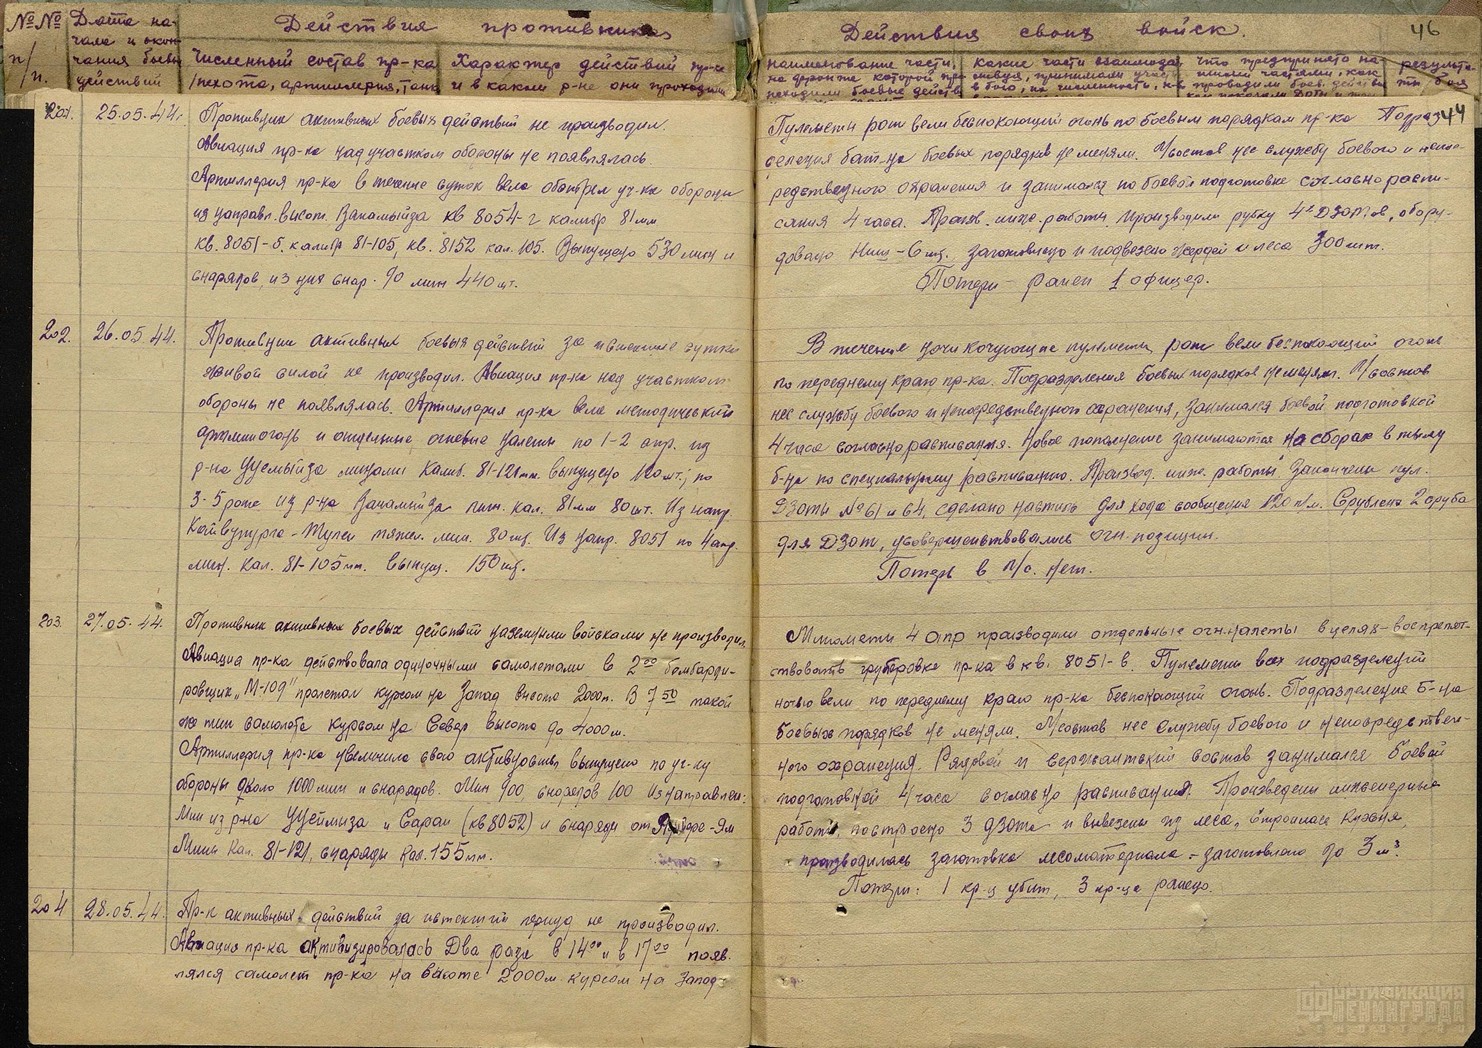 №№ п/п.
Дата на-
чала и окон-
чания боевы
действий
Действия противника
Численный состав пр-ка
/пехота, артиллерия, танк
Характер действий пр-ка
и в каком р-не они проходили
Действия своих войск.
46
наименование части,
на фронте которой пр-
исходили боевые действ
какие части взаимодей-
ствуя, принимали участ
в бою, их численность, на
что предпринято на-
шими частями, как
проводили боев. действ
результа-
ты боя
44
201. 25.05.44.
Противник активных боевых действий не производил.
Авиация пр-ка над участком обороны не появлялась.
Артиллерия пр-ка в течение суток вела обстрел уч-ка обороны
из направл. высот. Ванамыйза кв 8054-г калибр 81 мм
кв. 8051-б, калибр 81-105, кв. 8152 кал. 105. Выпущено 530 мин и
снарядов, из них снар. 90 мин 440 шт.
Пулеметы рот вели беспокоющий огонь по боевым порядкам пр-ка Подраз-
деления бат-на боевых порядков не меняли. Л/состав нес службу боевого и непос-
редственного охранения и занимался по боевой подготовке согласно распи-
сания 4 часа. Произв. инж. работы. Производили рубку 4х Дзотов, обору-
довано Ниш - 6 шт., заготовлено и подвезено жердей и леса 300 шт.
Потери - ранен 1 офицер.
202. 26.05.44.
Противник активных боевых действий за истекшие сутки
живой силой не производил. Авиация пр-ка над участком
обороны не появлялась. Артиллерия пр-ка вела методический
артминогонь и отдельные огневые налеты по 1-2 апр. из
р-на Уусмыйза минами калиб. 81-121 мм. выпущено 120 шт.; по
3-5 роте из р-на Ванамыйза мин. кал. 81 мм 80 шт. Из напр.
мин. 80 шт. Из напр. 8051 по 4 апр.
мин. кал. 81-105 мм. выпущ. 150 шт.
В течение ночи кочующие пулеметы рот вели беспокоющий огонь
по переднему краю пр-ка. Подразделения боевых порядков не менял. Л/состав
нес службу боевого и непосредственного охранения, занимался боевой подготовкой
4 часа согласно расписания. Новое пополнение занимаются на сборах в тылу
б-на по специальному расписанию. Производ. инж. работы закончены пул.
Дзоты № 61 и 64, сделано настила для хода сообщения 120 п/м. Срублено 2 сруба
для ДЗОТ, усовершенствовались огн. позиции.
Потерь в л/с. нет.
203. 27.05.44
Противник активных боевых действий наземными войсками не производил.
Авиация пр-ка действовала одиночными самолетами в 2⁰⁰ бомбарди-
ровщик „М-109" пролетал курсом на Запад высота 2000 м. В 7⁵⁰ такой
же тип самолета курсом на Север высота до 4000 м.
Артиллерия пр-ка увеличила свою активность выпущено по уч-ку
обороны около 1000 мин и снарядов. Мин 900, снарядов 100 Из направлен:
Мин из р-на и Сарай (кв 8052) и снаряды от
Мины кал. 81-121, снаряды кал. 155 мм.
Минометы 4 апр производили отдельные огн. налеты в целях воспрепят-
ствовать группировке пр-ка в кв. 8051-в. Пулеметы всех подразделений
ночью вели по переднему краю пр-ка беспокоющий огонь. Подразделение б-на
боевых порядков не меняли. Л/состав нес службу боевого и непосредствен-
ного охранения. Рядовой и сержантский состав занимался боевой
подготовкой 4 часа согласно расписания. Произведены инженерные
работы, построено 3 дзота и вывезены из леса,
производилась заготовка лесоматериала - заготовлено до 3 м³.
Потери: 1 кр-ц убит, 3 кр-ца ранено.
204 28.05.44
Пр-к активных действий за истекший период не производил.
Авиация пр-ка активизировалась Два раза в 14⁰⁰ и в 17⁰⁰ появ-
лялся самолет пр-ка на высоте 2000 м курсом на Запад-
ФОРТИФИКАЦИЯ
ЛЕНИНГРАДА